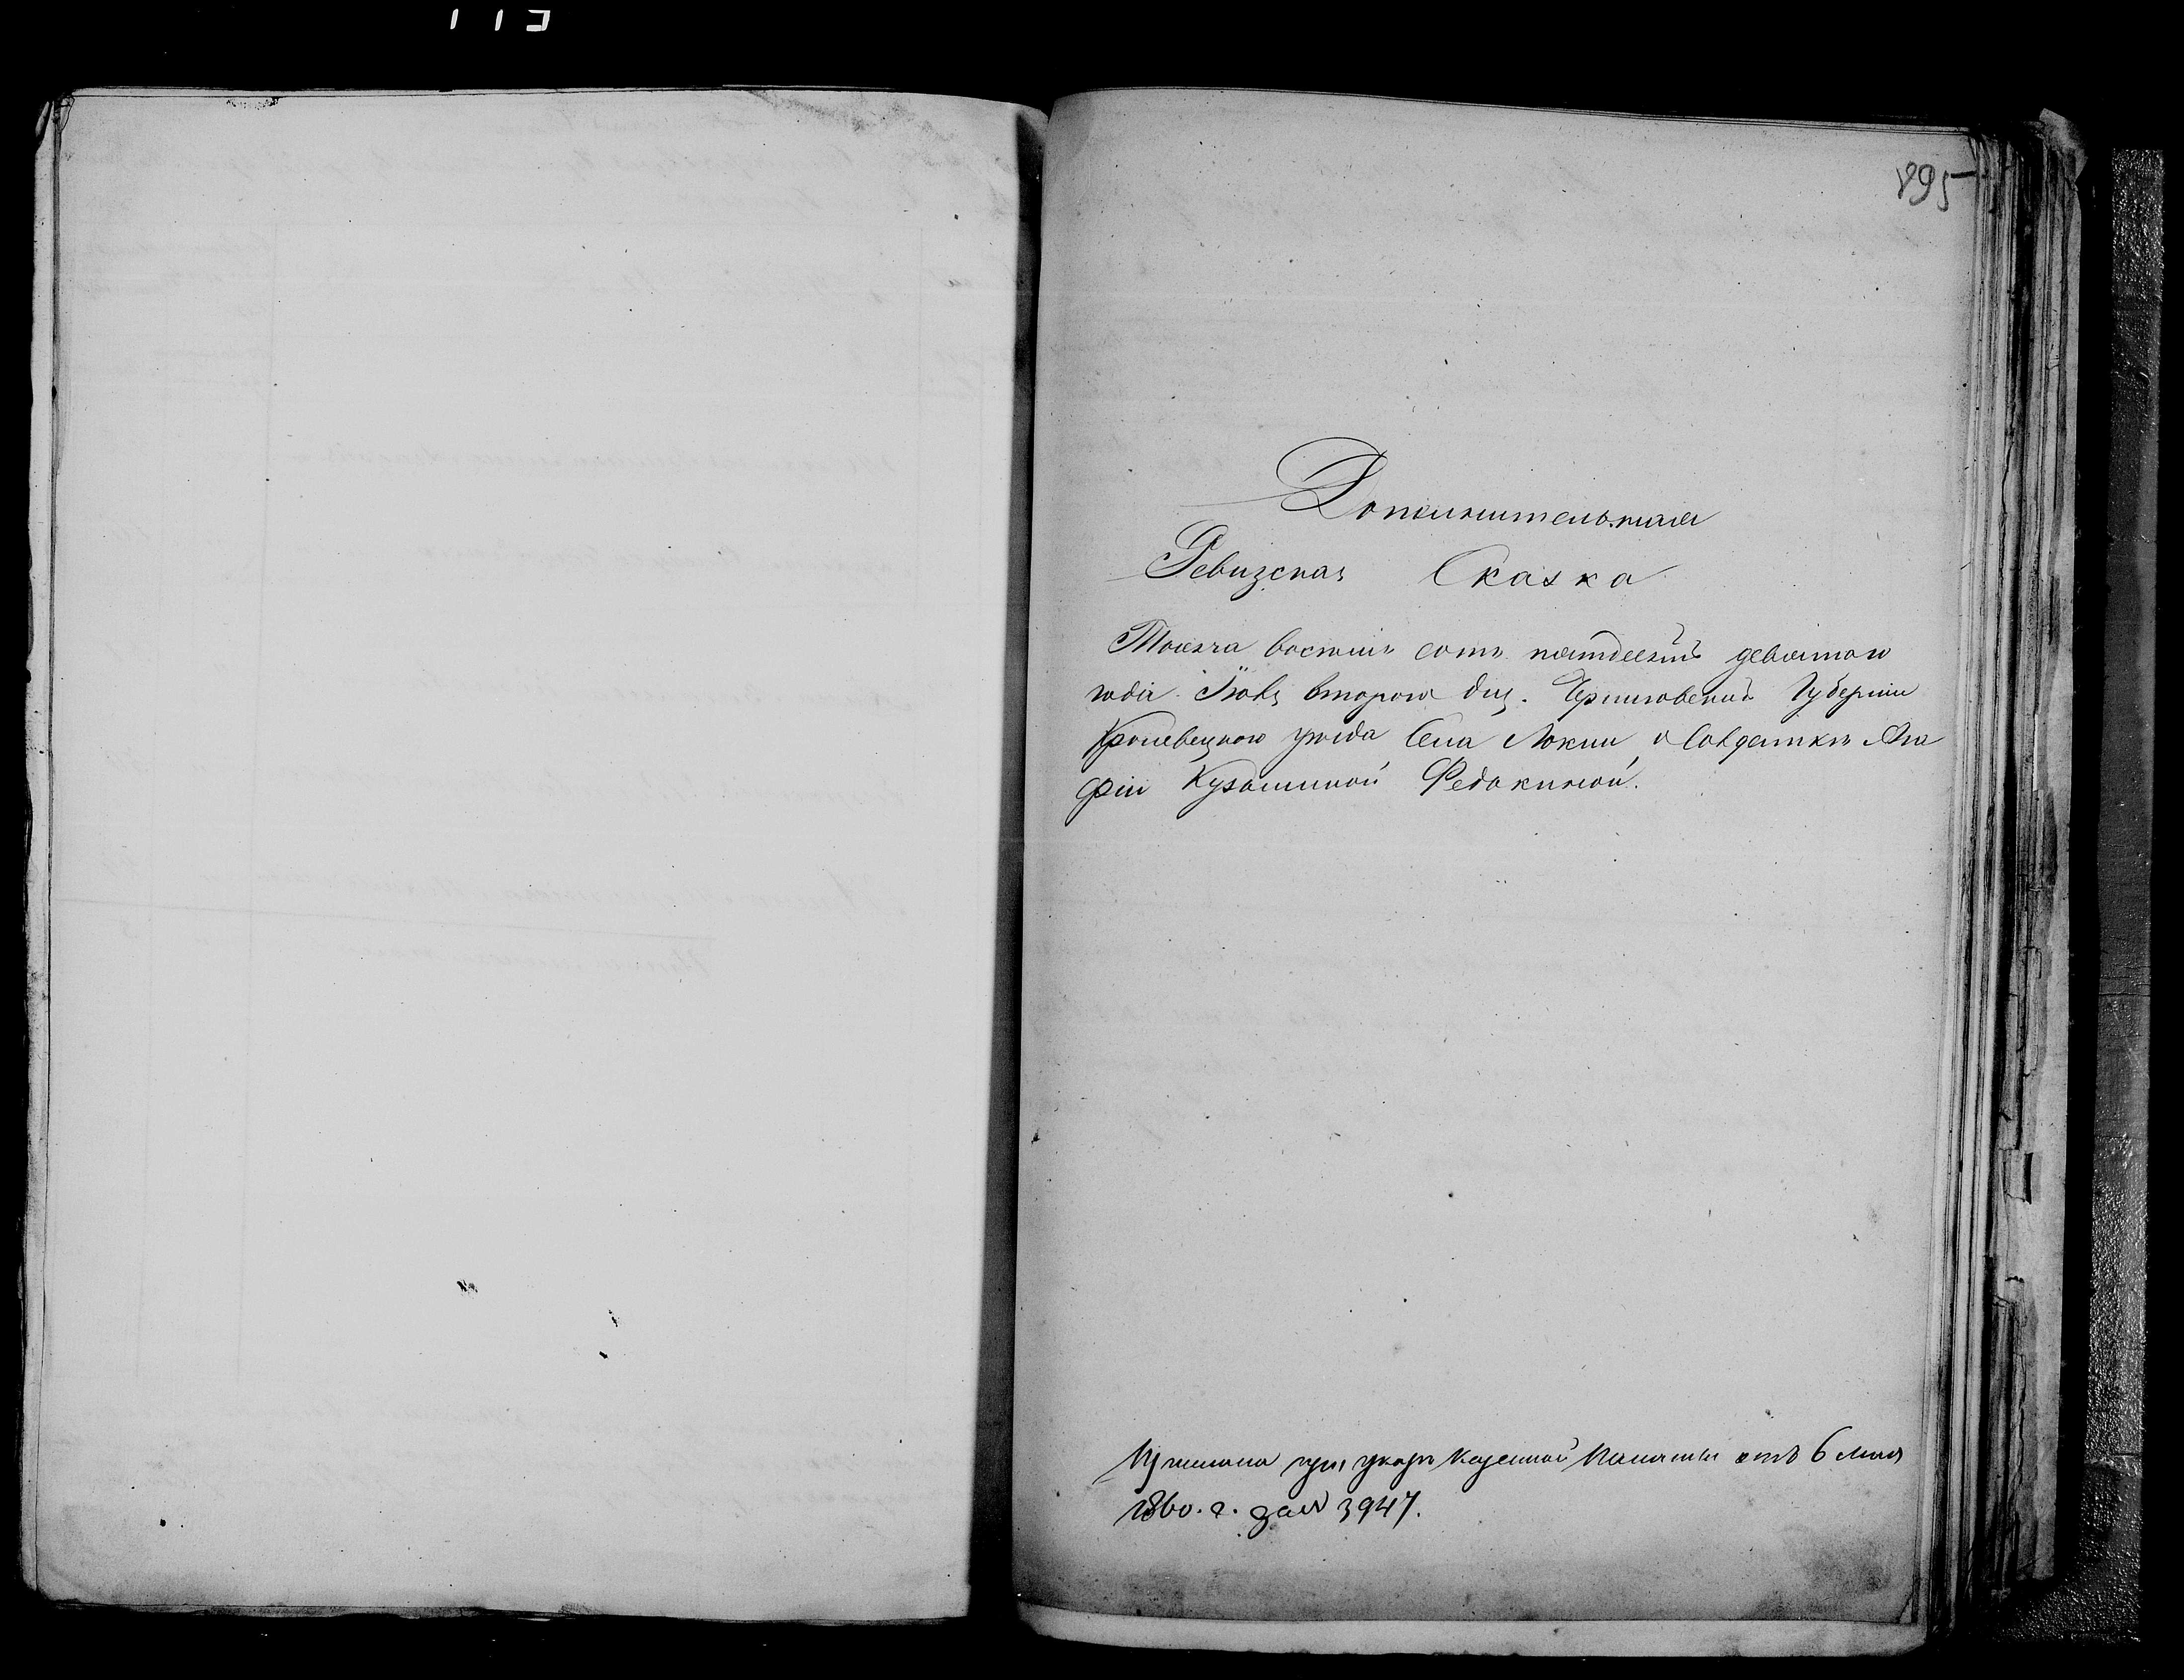 895
Дополнительная
Ревизская Сказка
Тысяча восемь сотъ пятдесятъ девятого
года Іюля второго дня. Черниговской Губерніи
Кролевецкого уезда Села Локни о Солдатке Ага
фіи Кузьминой Федокиной.
при указе Казенной Палаты отъ 6 мая
1860. г. за № 3947.